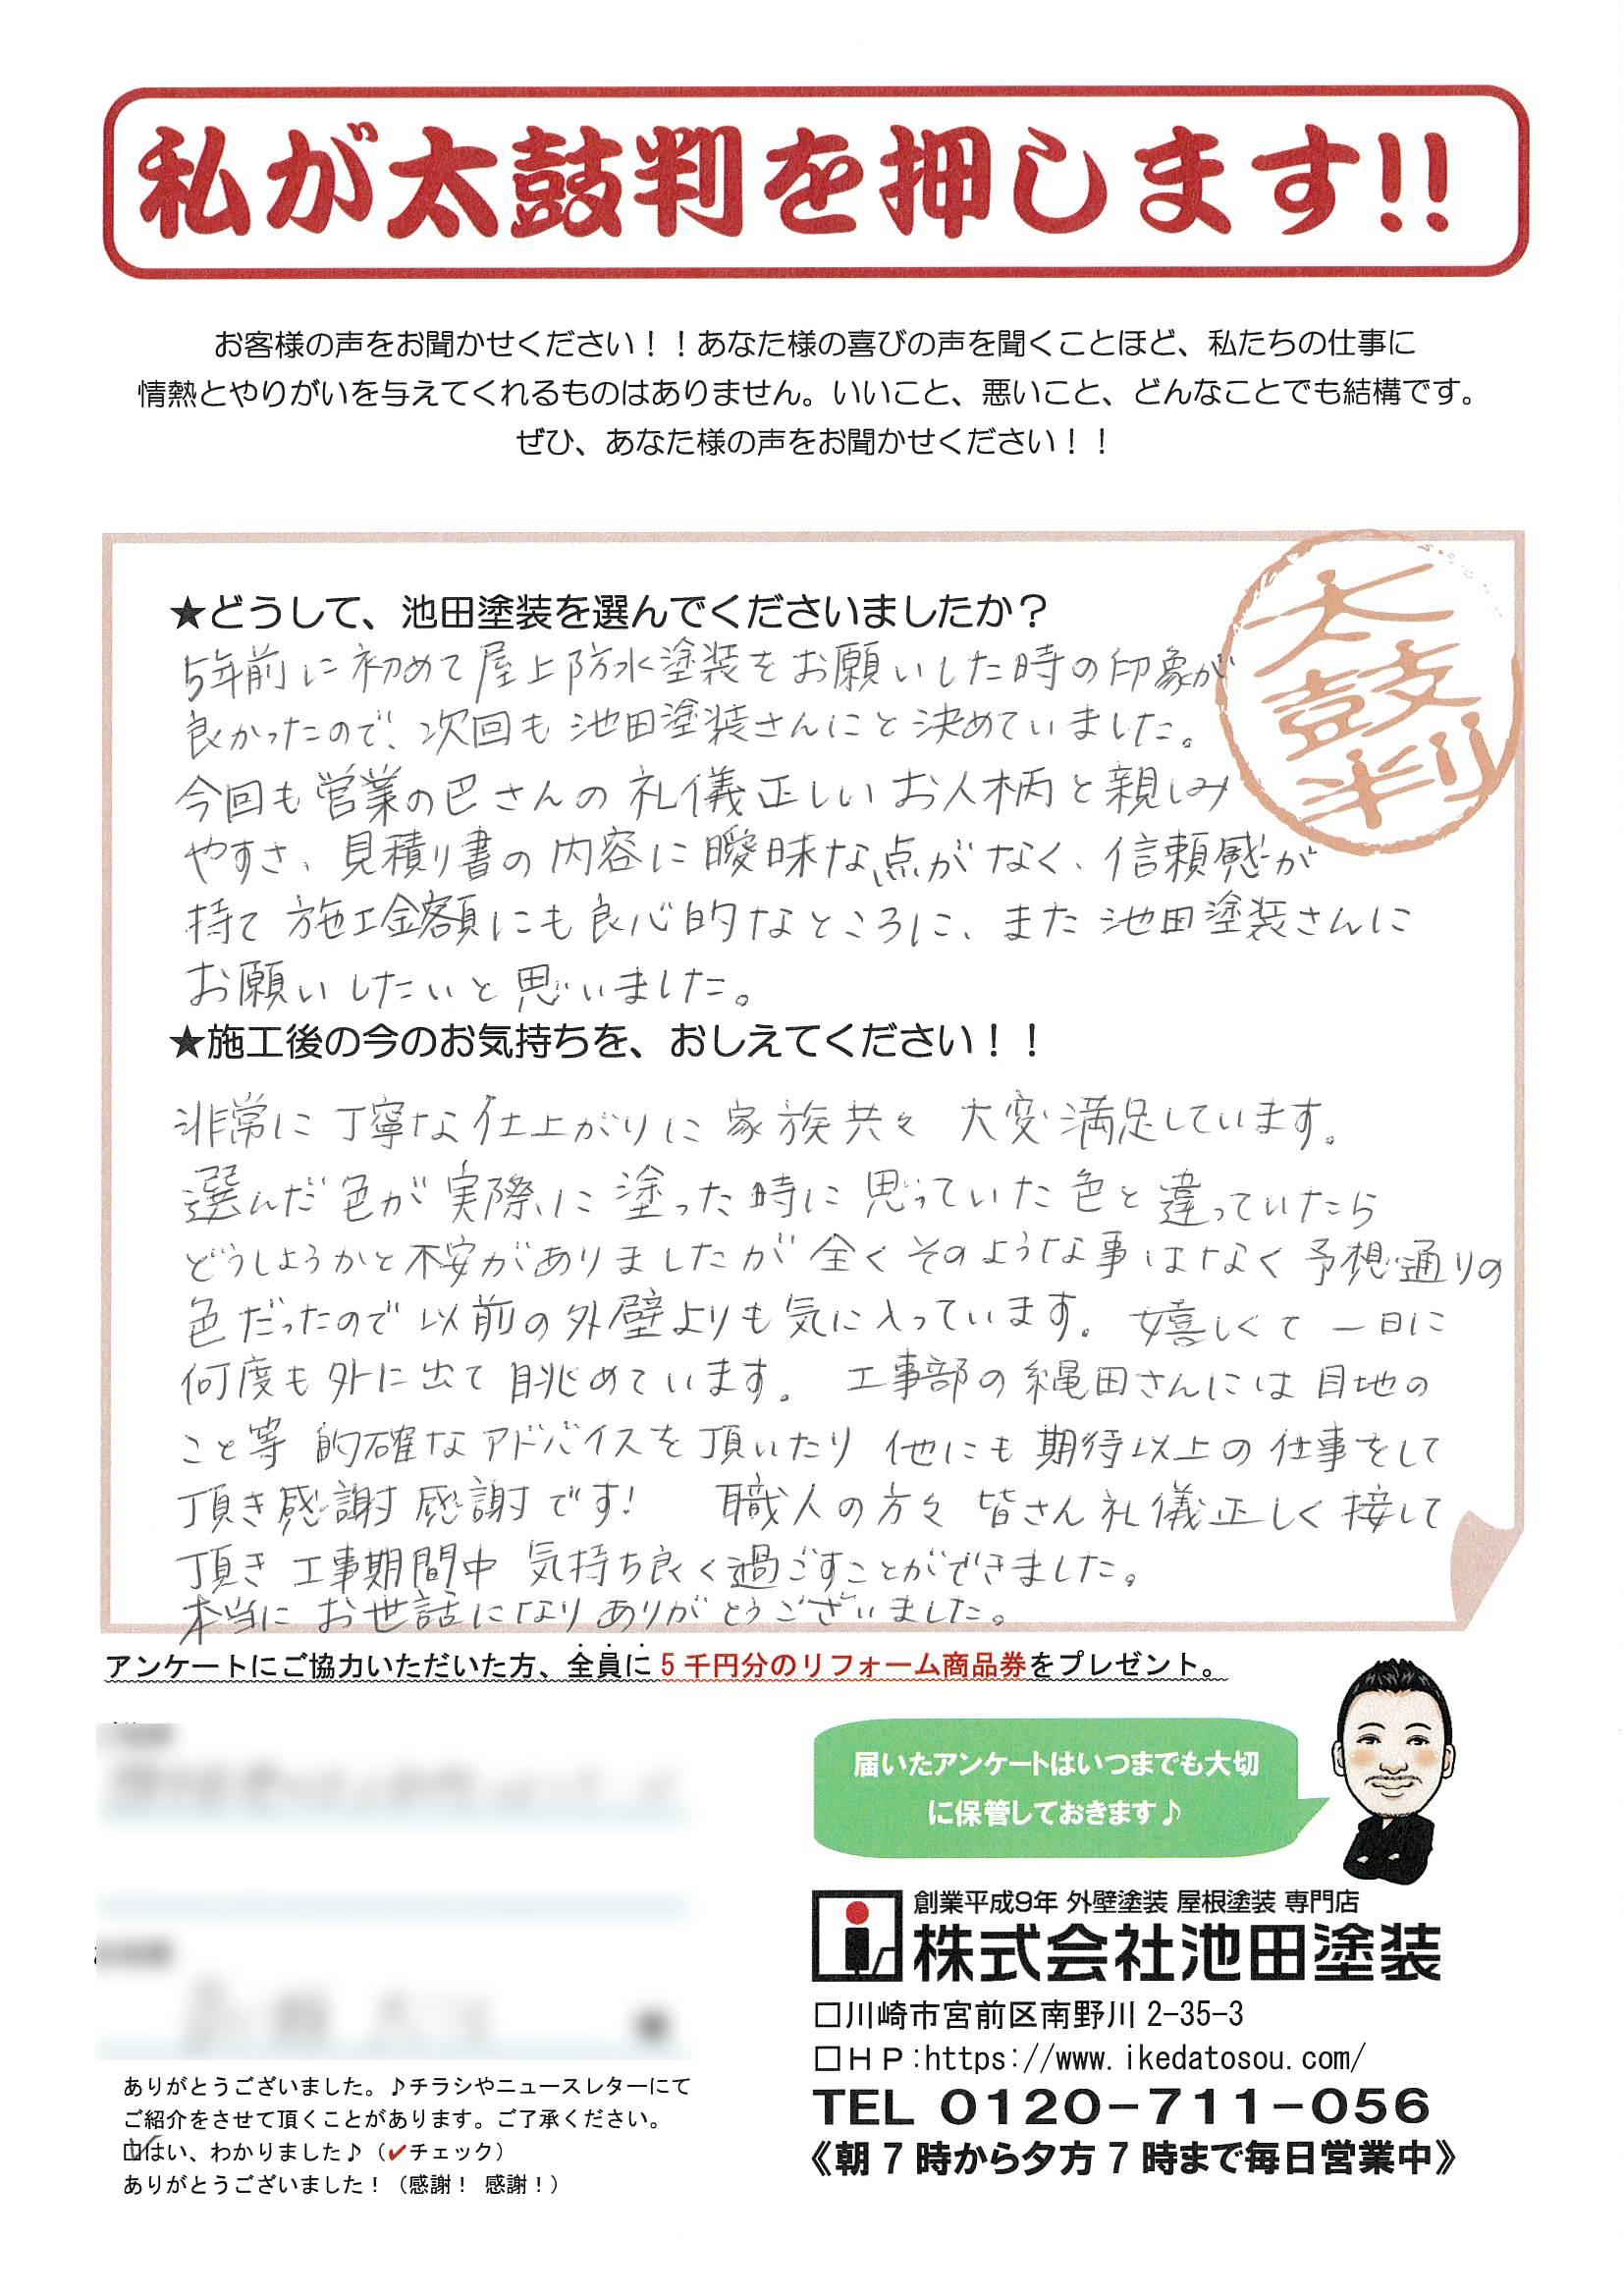 私が太鼓判を押します!!
お客様の声をお聞かせください！！あなた様の喜びの声を聞くことほど、私たちの仕事に
情熱とやりがいを与えてくれるものはありません。いいこと、悪いこと、どんなことでも結構です。
ぜひ、あなた様の声をお聞かせください！！
太鼓判
★どうして、池田塗装を選んでくださいましたか？
5年前に初めて屋上防水塗装をお願いした時の印象が
良かったので、次回も池田塗装さんにと決めていました。
今回も営業の巴さんの礼儀正しいお人柄と親しみ
やすさ、見積り書の内容に曖昧な点がなく、信頼感が
持て施工金額にも良心的なところに、また池田塗装さんに
お願いしたいと思いました。
★施工後の今のお気持ちを、おしえてください！！
非常に丁寧な仕上がりに家族共々 大変満足しています。
選んだ色が実際に塗った時に思っていた色と違っていたら
どうしようかと不安がありましたが全くそのような事はなく予想通りの
色だったので以前の外壁よりも気に入っています。嬉しくて一日に
何度も外に出て眺めています。 工事部の縄田さんには目地の
こと等 的確なアドバイスを頂いたり 他にも期待以上の仕事をして
頂き感謝感謝です! 職人の方々皆さん礼儀正しく接して
頂き工事期間中 気持ち良く過ごすことができました。
本当にお世話になりありがとうございました。
アンケートにご協力いただいた方、全員に5千円分のリフォーム商品券をプレゼント。
届いたアンケートはいつまでも大切
に保管しておきます♪
創業平成9年 外壁塗装 屋根塗装 専門店
株式会社池田塗装
□川崎市宮前区南野川2-35-3
□ＨＰ:https://www.ikedatosou.com/
TEL 0120-711-056
《朝7時から夕方7時まで毎日営業中》
ありがとうございました。♪チラシやニュースレターにて
ご紹介をさせて頂くことがあります。ご了承ください。
☑はい、わかりました♪（✔チェック）
ありがとうございました！（感謝！ 感謝！）